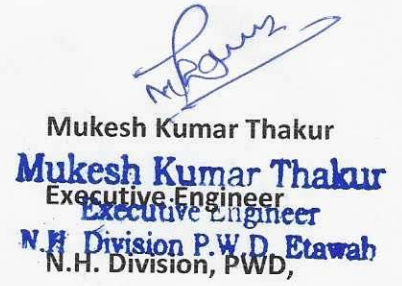 Mukesh Kumar Thakur
Mukesh Kumar Thakur
Executive Engineer
Executive Engineer
N.H Division P.W.D. Etawah
N.H. Division, PWD,